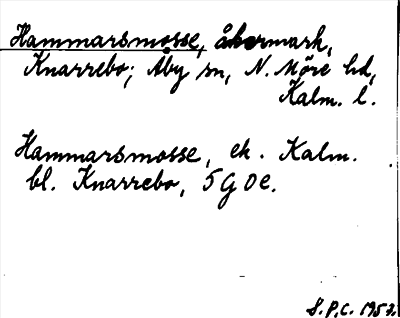 Hammarsmosse, åkermark,
Knarrebo; Åby sn, N. Möre hd,
Kalm. l.
Hammarsmosse, ek. Kalm.
bl. Knarrebo, 5G0e.
S.P.C. 1957.